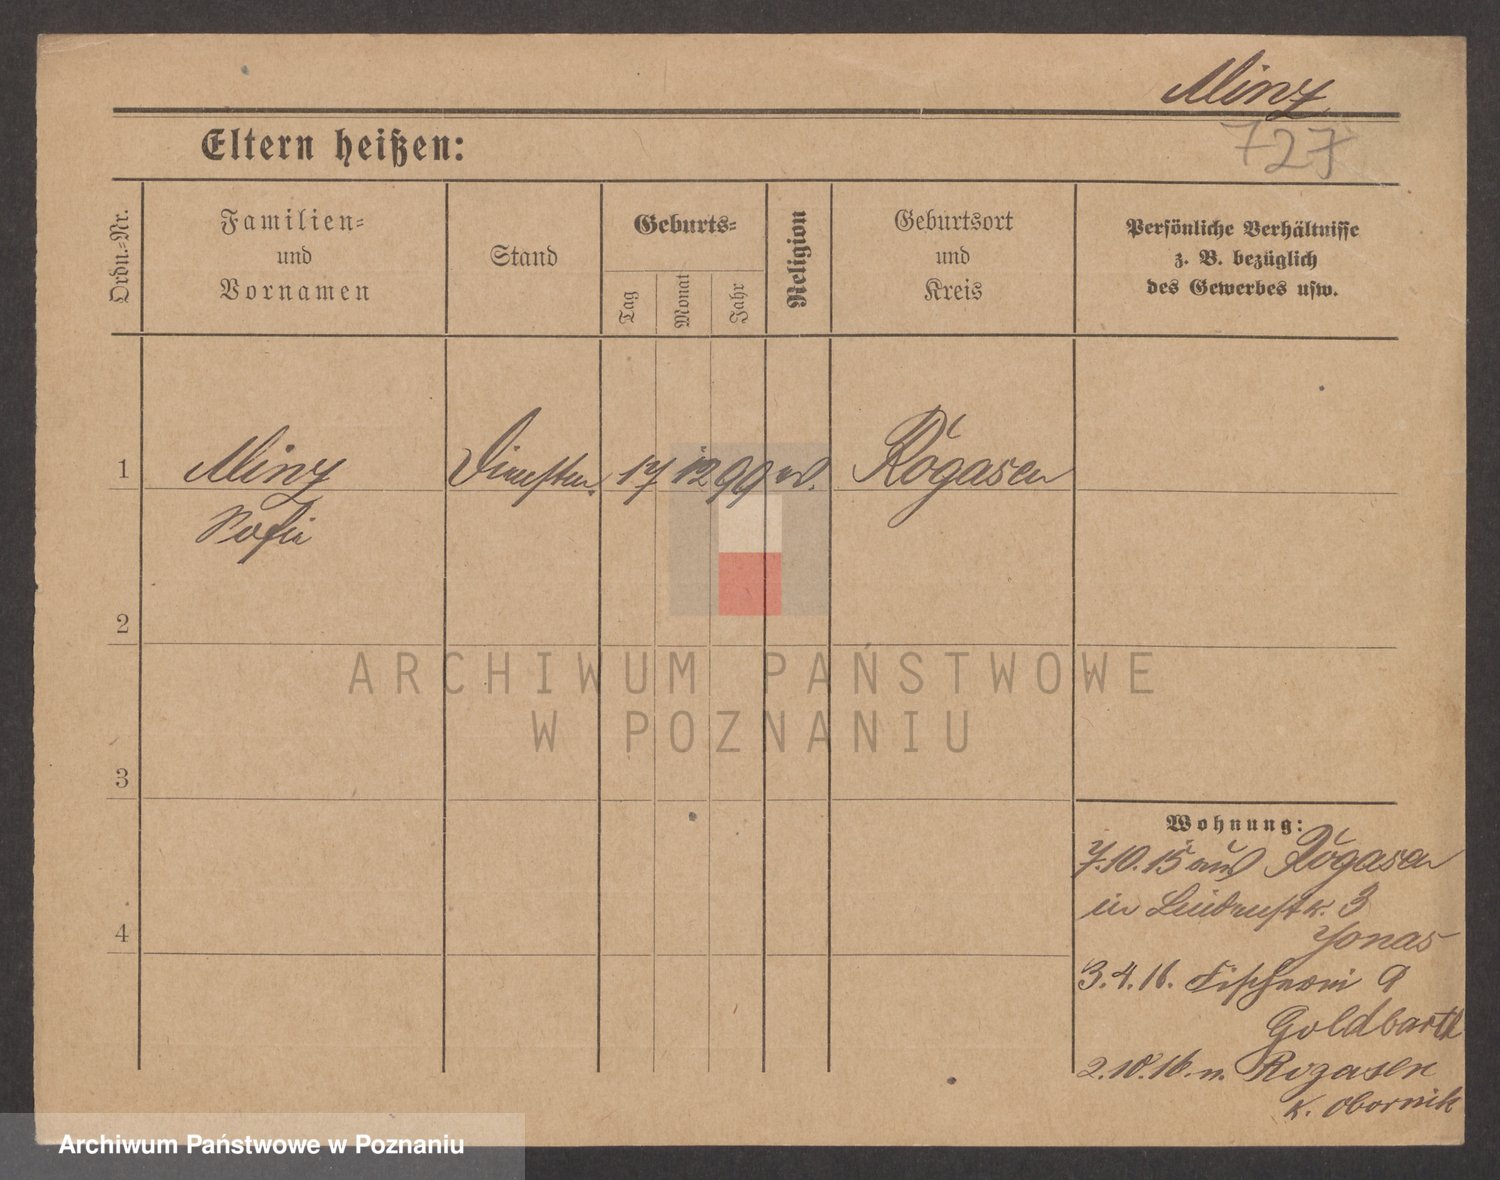 Minz
727
Eltern heißen:
Ordn.-Nr.
Familien-
und
Vornamen
Stand
Geburts-
Tag
Monat
Jahr
Religion
Geburtsort
und
Kreis
Persönliche Verhältnisse
z. B. bezüglich
des Gewerbes usw.
1 Minz 17 12 99 Rogasen
Sofie
2
ARCHIWUM PAŃSTWOWE
W POZNANIU
3
Wohnung:
7.10.15 aus Rogasen
in Lindenstr. 3
Jonas
4
3.4.16. Fischerei 9
Goldbarth
2.10.16. n. Rogasen
K. Obornik
Archiwum Państwowe w Poznaniu